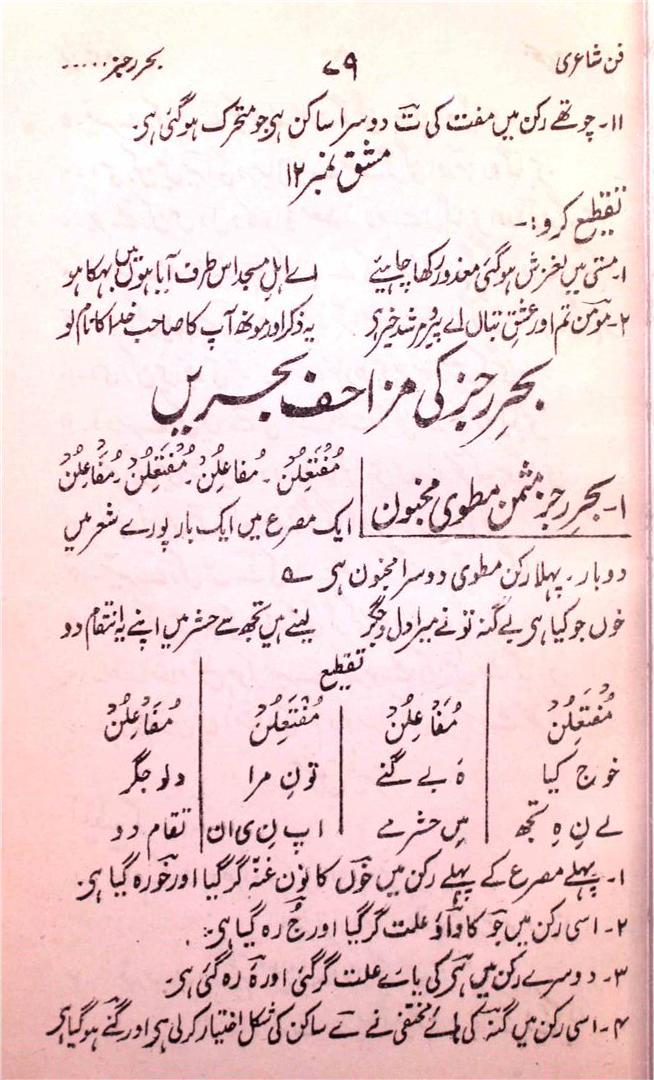 فن شاعری ۷۹ بحر رجز.....
۱۱۔ چوتھے رکن میں مفت کی ت دوسرا ساکن ہی جو متحرک ہو گئی ہی۔
مشق نمبر ۱۲
تقطیع کرو:۔
۱۔ مستی میں لغزش ہو گئی معذور رکھا چاہیئے اے اہل مسجد اس طرف آیا ہوں میں بہکا ہوا
۲۔ مومن تم اور عشق بتاں اے پیر و مرشد خیر ہی یہ ذکر اور مونھ آپ کا صاحب خدا کا نام لو
بحرِ رجز کی مزاحف بحریں
۱۔ بحرِ رجز مثمن مطوی مخبون
مُفْتَعِلُنْ۔ مُفَاعِلُنْ۔ مُفْتَعِلُنْ۔ مُفَاعِلُنْ
ایک مصرع میں ایک بار پورے شعر میں
دو بار۔ پہلا رکن مطوی دوسرا مخبون ہی ؎
خوں جو کیا ہی بے گنہ تو نے میرا دل و جگر لینے ہیں تجھ سے حشر میں اپنے یہ انتقام دو
تقطیع
مُفْتَعِلُنْ مُفَاعِلُنْ مُفْتَعِلُنْ مُفَاعِلُنْ
خوج کیا ہَ بے گنے تو نِ مرا دلو جگر
لے نِ ہِ تجھ سِ حشر مے اپ نِ ی ان تقام دو
۱۔ پہلے مصرع کے پہلے رکن میں خوں کا نون غنہ گر گیا اور خو رہ گیا ہی۔
۲۔ اسی رکن میں جو کا واؤ علت گر گیا اور جُ رہ گیا ہی۔
۳۔ دوسرے رکن میں ہی کی یائے علت گر گئی اور ہَ رہ گئی ہی۔
۴۔ اسی رکن میں گنہ کی ہائے مختفی نے ے ساکن کی شکل اختیار کر لی ہی اور گنے ہو گیا ہی